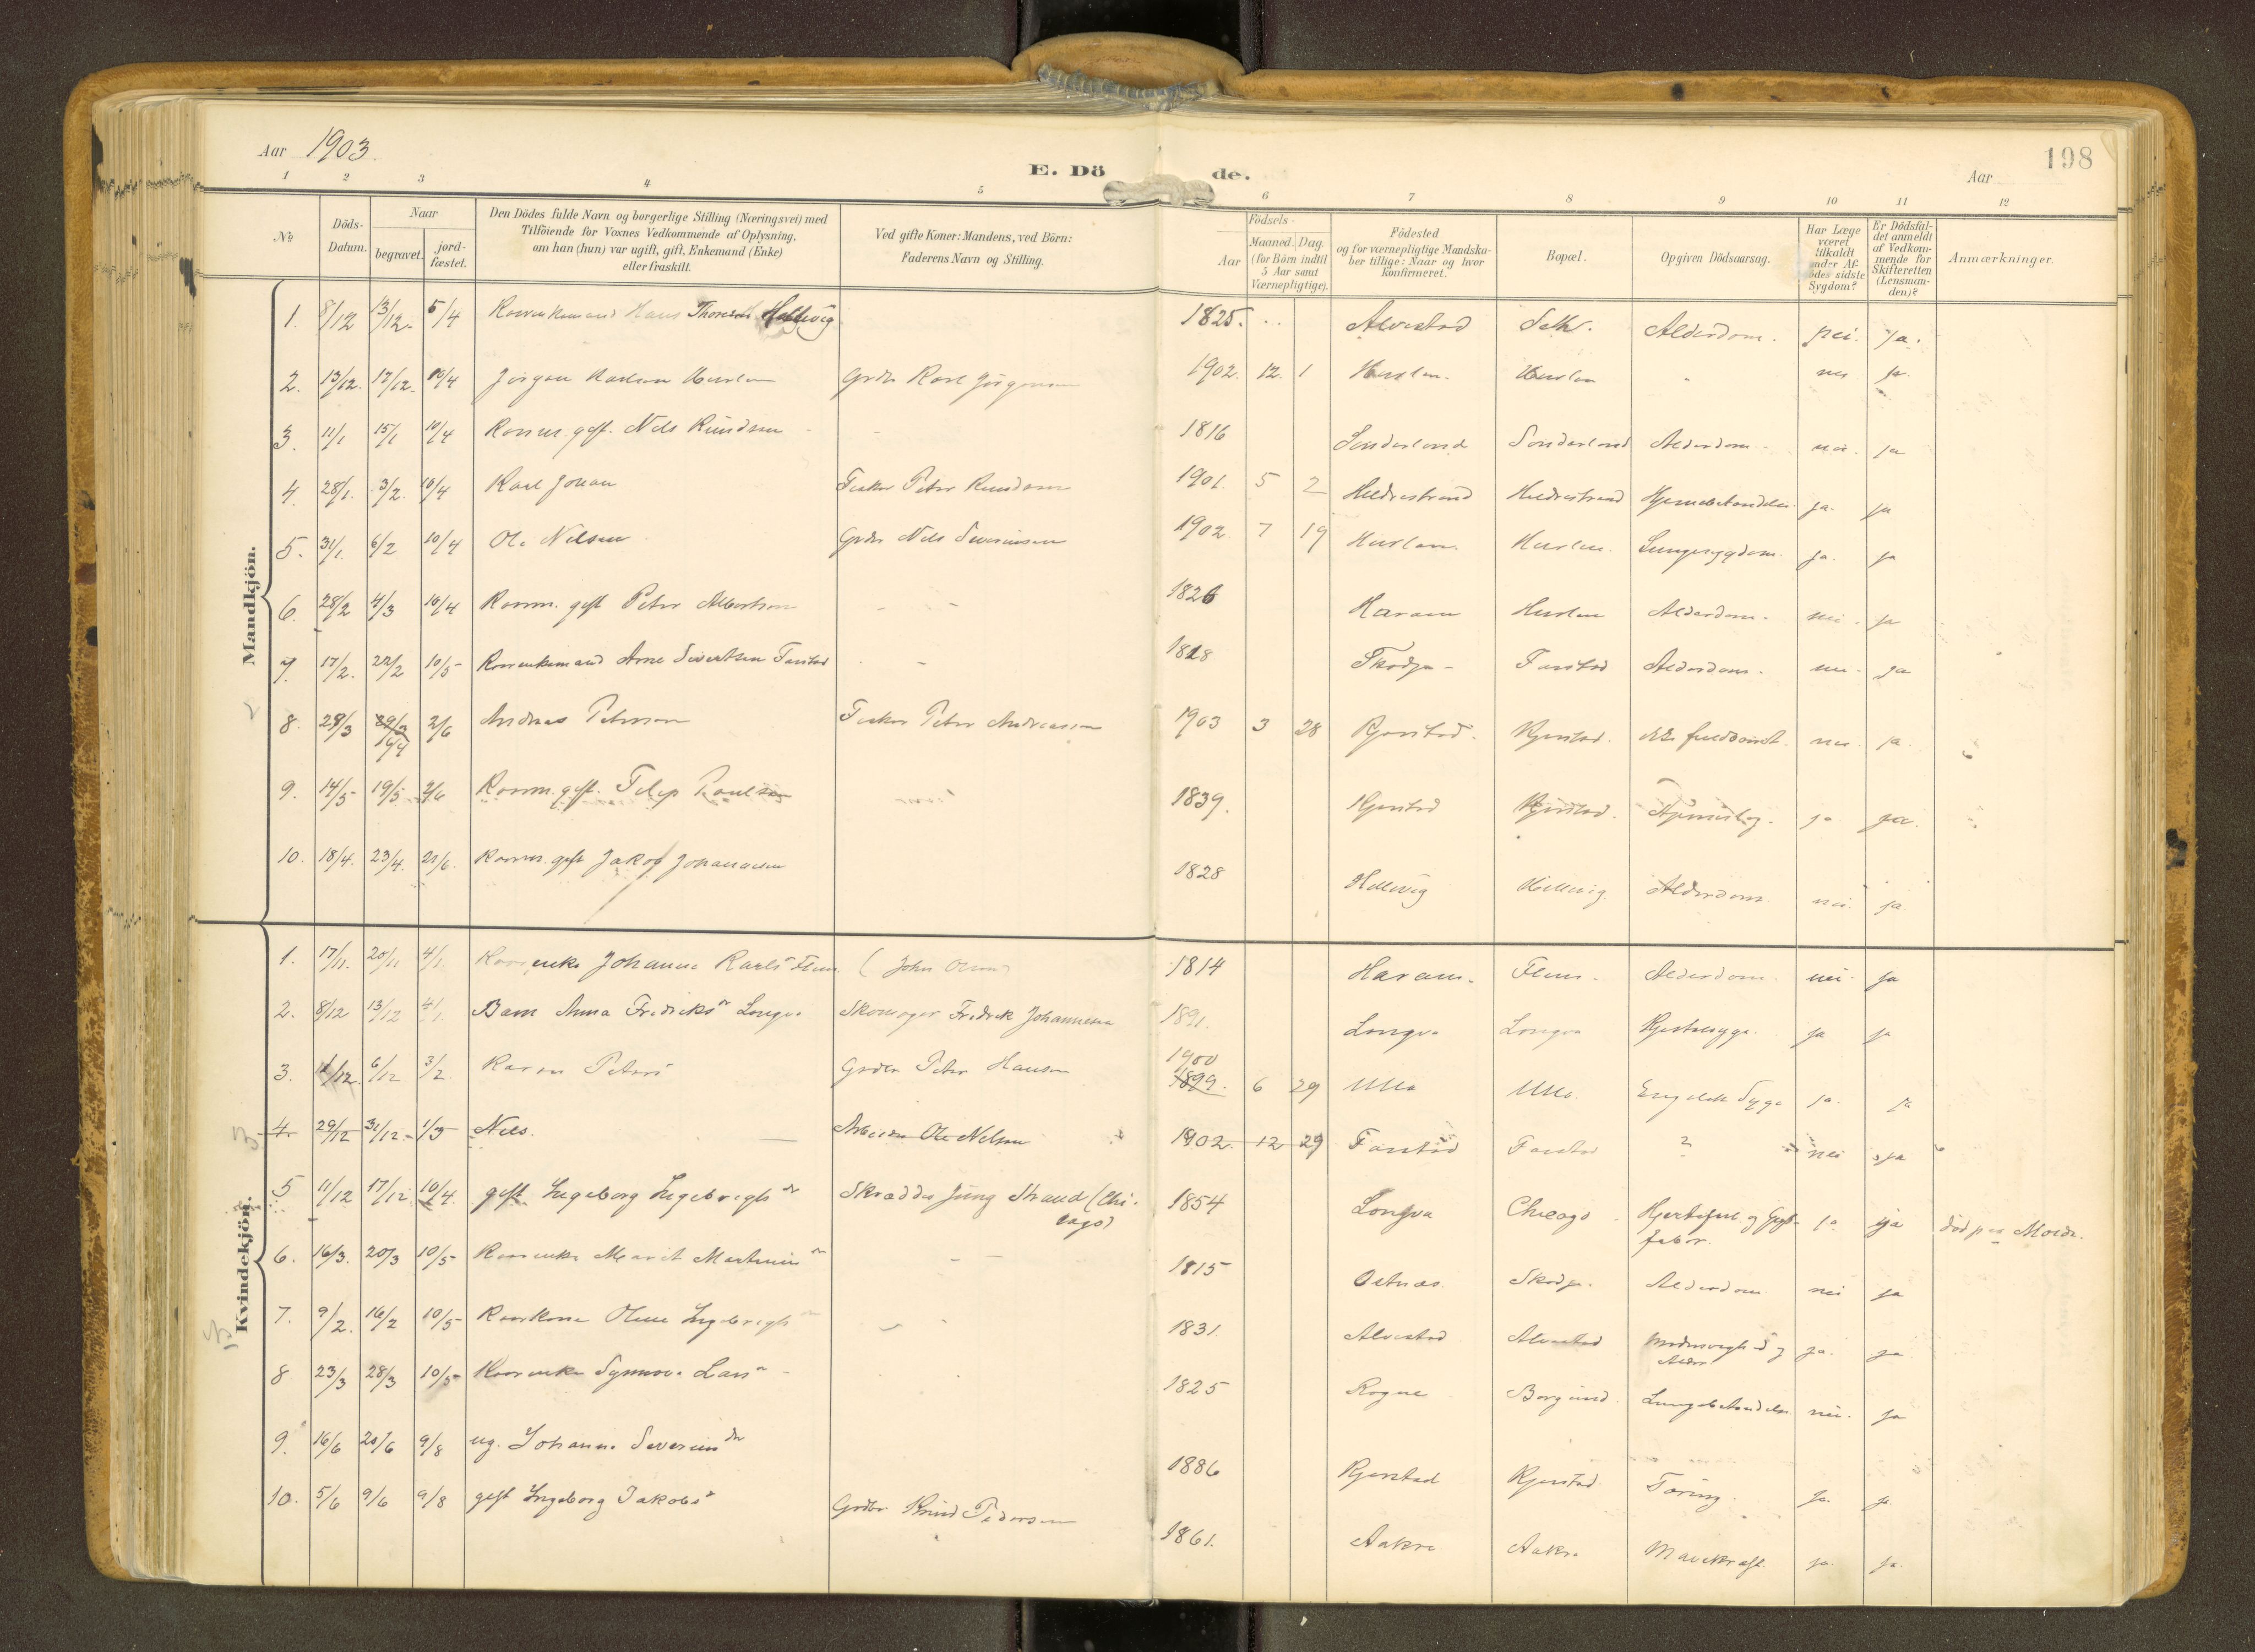 Aar 1903.
E. Dö de.
Aar
198
1 2 3 4 5 6 7 8 9 10 11 12
No.
Döds-Datum.
Naar
begravet.
jord-fæstet.
Den Dödes fulde Navn og borgerlige Stilling (Næringsvei) med
Tilföiende for Voxnes Vedkommende af Oplysning,
om han (hun) var ugift, gift, Enkemand (Enke)
eller fraskilt.
Ved gifte Koner: Mandens, ved Börn:
Faderens Navn og Stilling.
Födsels-
Aar
Maaned. Dag.
(for Börn indtil
5 Aar samt
Værnepligtige).
Födested
og for værnepligtige Mandska-
ber tillige: Naar og hvor
konfirmeret.
Bopæl.
Opgiven Dödsaarsag.
Har Læge
været
tilkaldt
under Af-
dödes sidste
Sygdom?
Er Dödsfal-
det anmeldt
af Vedkom-
mende for
Skifteretten
(Lensman-
den)?
Anmærkninger.
Mandkjön.
1. 8/12 13/12 5/4 Hans Thoresen Hellevig 1825. Alvestad Alderdom. nei. ja.
2. 13/12. 17/12. 10/4 Jörgen Karlsen Hurlen Grdbr Karl Jörgensen 1902. 12. 1 Hurlen. Hurlen " nei ja
3. 11/1 15/1 10/4 gift. Nils Knudsen 1816 Sönderland Sönderland Alderdom nei. ja
4. 28/1. 3/2. 10/4 Karl Johan Fisker Peter Knudsen 1901. 5 2 Hildrestrand Hildrestrand ja. ja
5. 31/1. 6/2 10/4 Ole Nilsen Grdbr Nils Severinsen 1902. 7 19 Hurlen. Hurlen. Lungesygdom. ja. ja
6. 28/2 4/3 10/4 gift Peter Albertsen 1826 Haram Hurlen Alderdom. nei. ja
7. 17/2. 22/2 10/5 Arne Sivertsen Farstad 1818 Skodje Farstad Alderdom. nei ja
8. 29/3 29/3 16/4 2/6 Andreas Petersen Fisker Peter Andreassen 1903 3 28 Kjerstad. Kjerstad. ikke fuldbaaret. nei ja.
9. 14/5 19/5 2/6 gift. Filip Poulsen 1839. Kjerstad Kjerstad. ja ja.
10. 18/4. 23/4. 21/6. gift Jakob Johannesen 1828 Hellevig Hellevig Alderdom nei. ja
Kvindekjön.
1. 17/11. 20/11 4/1. Johanne Karlsd Flem. (John Olsen) 1814 Haram. Flem. Alderdom. nei. ja
2. 8/12 13/12 4/1. Barn Anna Fredriksdr Longva Skomager Fredrik Johannesen 1891. Longva Longva Hjertesyge. ja ja
3. 1/12. 6/12 3/2. Karen Petersd Grdbr Peter Hansen 1900 1899. 6 29 Ulla Ulla. Engelsk Syge ja. ja
4. 29/12 31/12. 1/3 Nils. Arbeider Ole Nilsen 1902. 12 29 Farstad Farstad ? nei ja
5 11/12 17/12 10/4. gift Ingeborg Ingebrigtsdr Skrædder Strand (Chi-
cago) 1854 Longva Chicago Hjertefeil og Gigt-
feber. ja ja död paa Molde.
6. 16/3. 20/3 10/5 Marit Martinusdr 1815 Östnæs Skodje. Alderdom nei ja
7. 9/2. 16/2 10/5 Oline Ingebrigtsdr 1831. Alvestad Alvestad ja. ja
8 23/3 28/3 10/5 Synnöve Larsdr 1825 Rogne Borgund. nei. ja
9. 16/6 20/6 9/8 ug. Johanne Severinsdr 1886 Kjerstad Kjerstad. Tæring. ja. ja.
10. 5/6 9/6 9/8 gift Ingeborg Jakobsdr Grdbr Knud Pedersen 1861. Aakre Aakre Mavekræft. ja. ja.